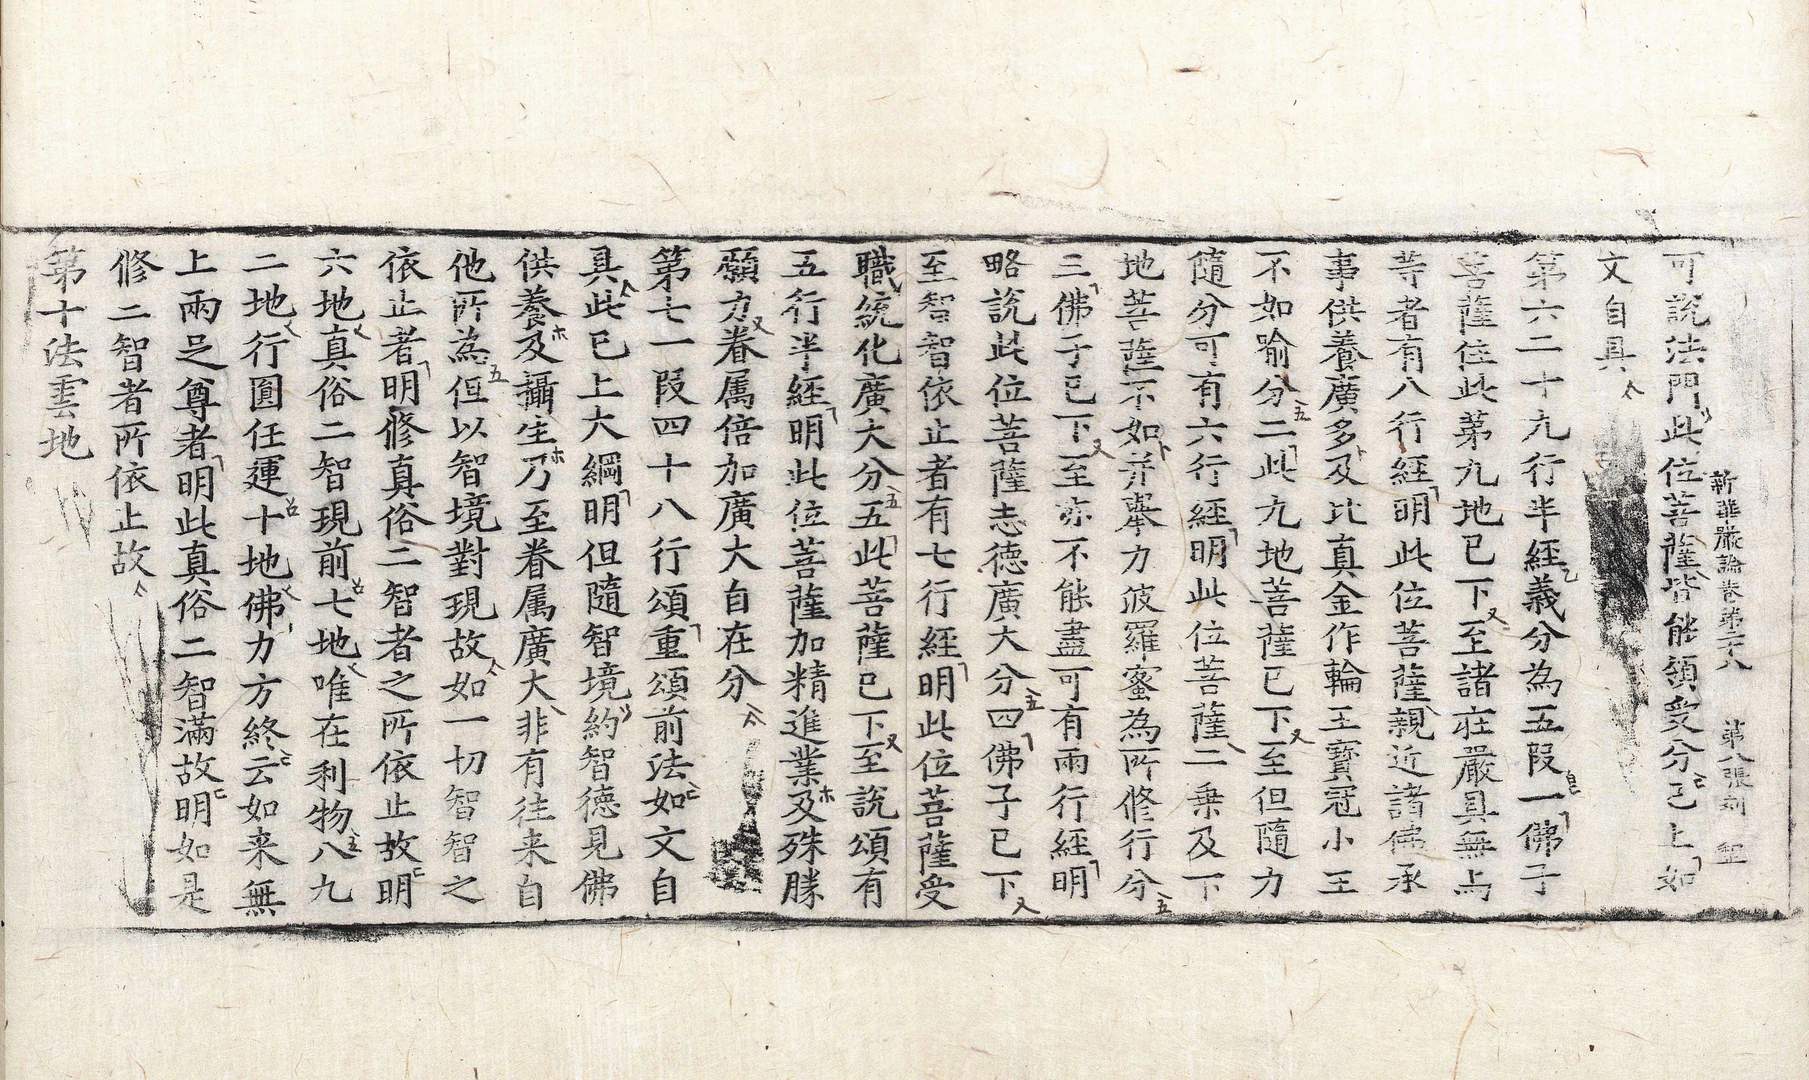 新華嚴論卷第二十八　第八張
可說法門此位菩薩皆能領受分已上如
文自具
第六二十九行半經義分為五段一佛子
菩薩住此第九地已下至諸莊嚴具無与
等者有八行經明此位菩薩親近諸佛承
事供養廣多及比真金作輪王寶冠小王
不如喻分二此九地菩薩已下至但隨力
隨分可有六行經明此位菩薩二乘及下
地菩薩不如并舉力波羅蜜為所修行分
三佛子已下至亦不能盡可有兩行經明
略說此位菩薩志德廣大分四佛子已下
至智智依止者有七行經明此位菩薩受
職統化廣大分五此菩薩已下至說頌有
五行半經明此位菩薩加精進業及殊勝
願力眷属倍加廣大自在分
第七一段四十八行頌重頌前法如文自
具此已上大綱明但隨智境約智德見佛
供養及攝生乃至眷属廣大非有往来自
他所為但以智境對現故如一切智智之
依止者明修真俗二智者之所依止故明
六地真俗二智現前七地唯在利物八九
二地行圓任運十地佛力方終云如来無
上兩足尊者明此真俗二智滿故明如是
修二智者所依止故
第十法雲地